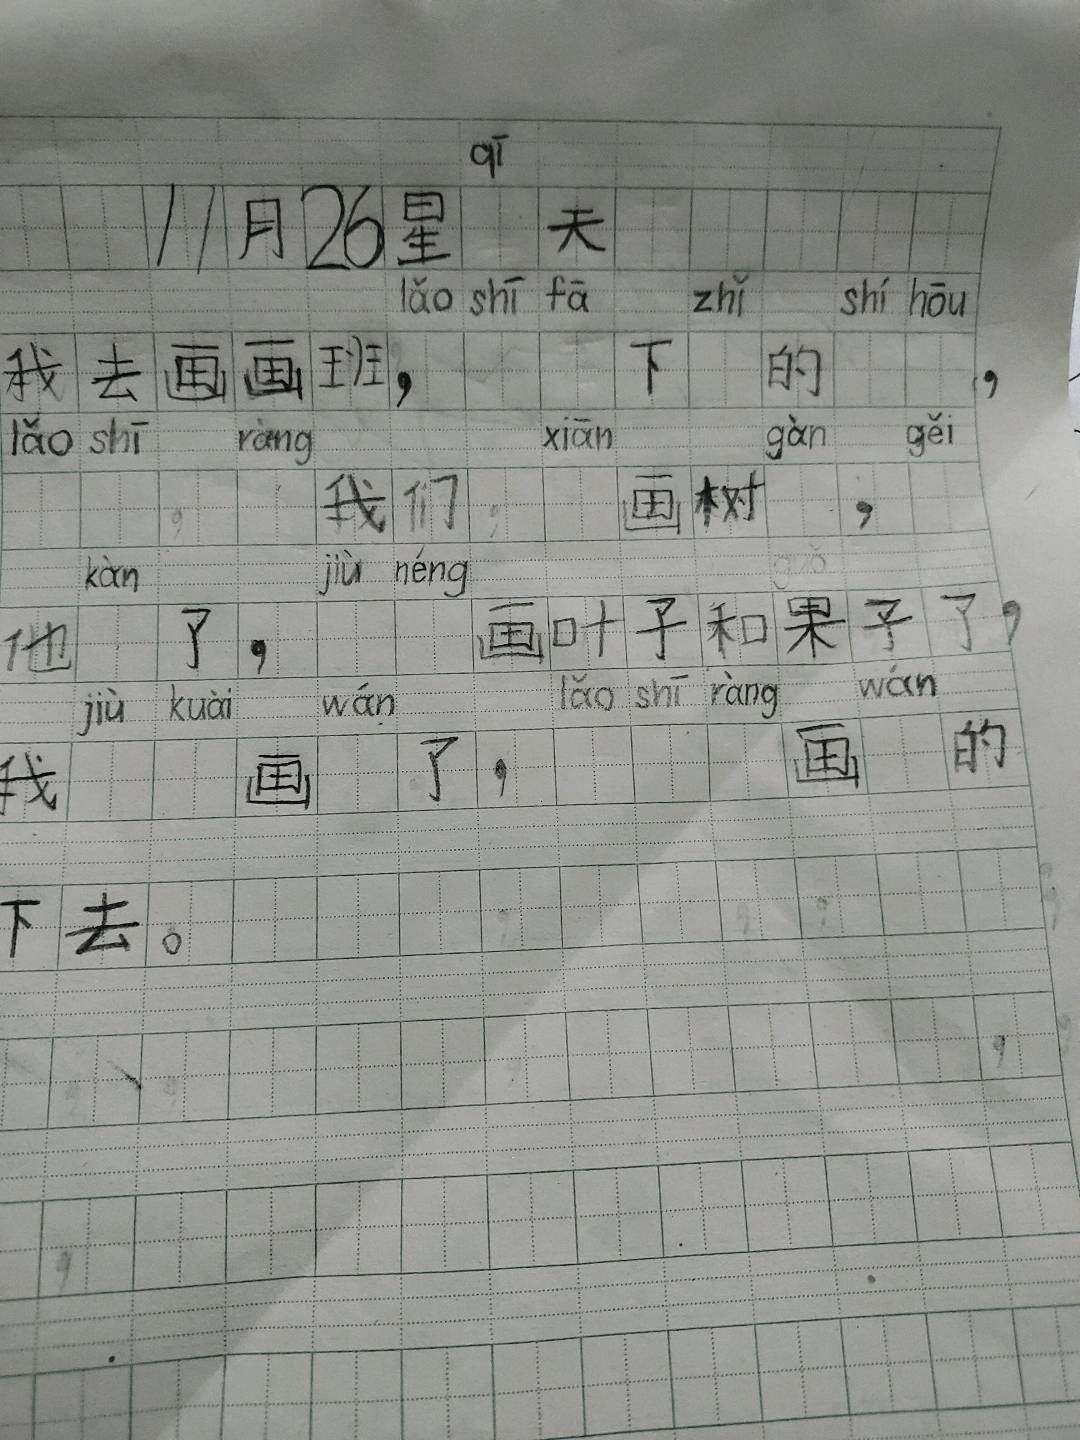 qī
11月26星天
lǎo shī fā zhǐ shí hōu
我去画画班，下的，
lǎo shī ràng xiān gàn gěi
我们画树，
kàn jiù néng guǒ
他了，画叶子和果子了，
jiù kuài wán lǎo shī ràng wán
我画了，画的
下去。